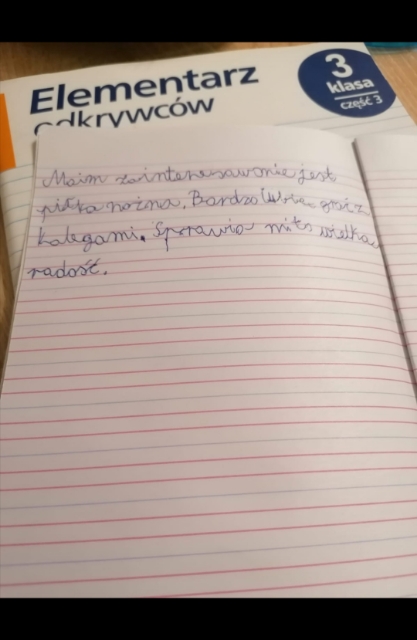 Elementarz
odkrywców
3
klasa
część 3
Moim zainteresowanie jest
piłka nożna. Bardzo lubię grać z
kolegami. Sprawia mi to wielka
radość.